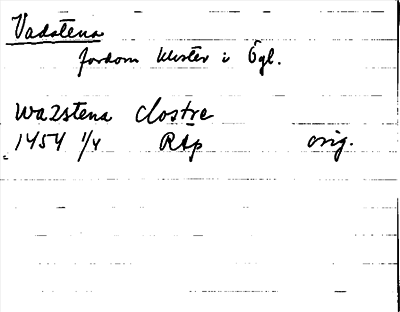 Vadstena
fordom kloster i Ögl.
wa2stena clostre
1454 1/4 RAp orig.